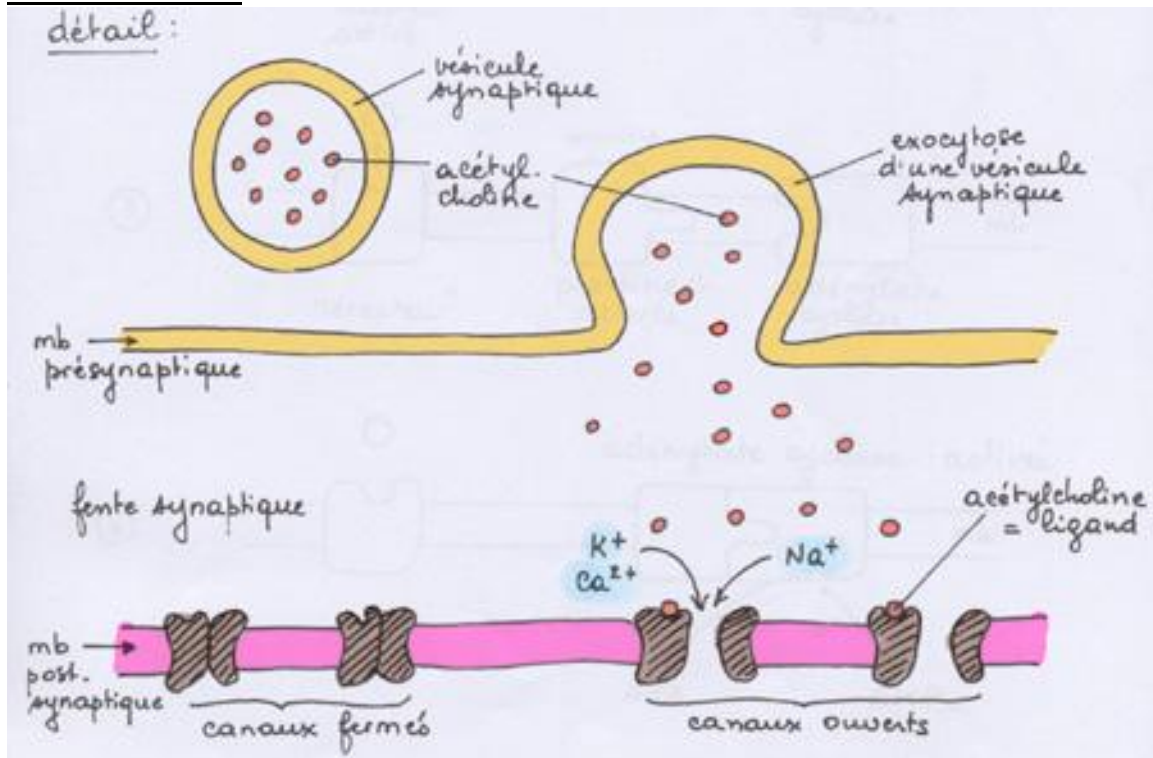 détail :
vésicule
synaptique
acétyl-
choline
exocytose
d'une vésicule
synaptique
mb
présynaptique
fente synaptique
acétylcholine
= ligand
K+
Ca2+
Na+
mb
post-
synaptique
canaux fermés
canaux ouverts